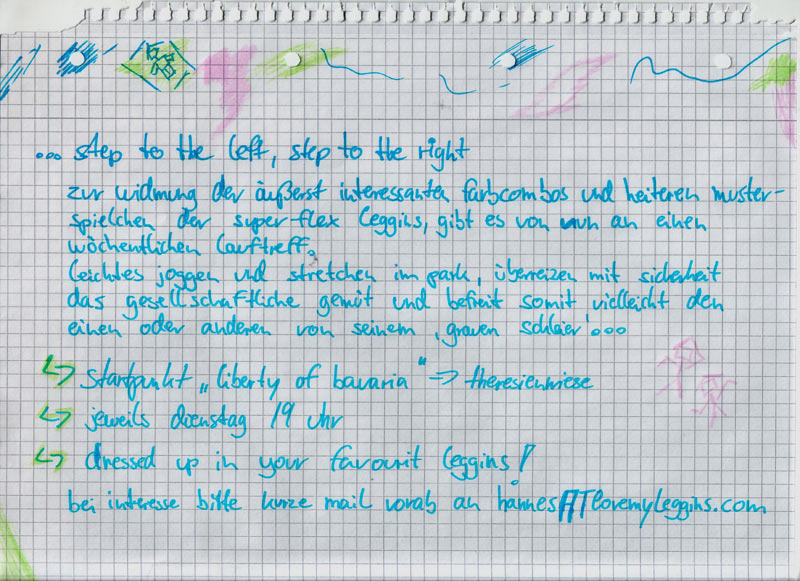 ... step to the left, step to the right
zur widmung der äußerst interessanten farbcombos und heiteren muster-
spielchen der super-flex leggins, gibt es von nun an einen
wöchentlichen lauftreff.
leichtes joggen und stretchen im park, überreizen mit sicherheit
das gesellschaftliche gemüt und befreit somit vielleicht den
einen oder anderen von seinem ,grauen schleier'...
↳ startpunkt „liberty of bavaria" => theresienwiese
↳ jeweils dienstag 19 uhr
↳ dressed up in your favourit leggins!
bei interesse bitte kurze mail vorab an hannesATlovemyleggins.com